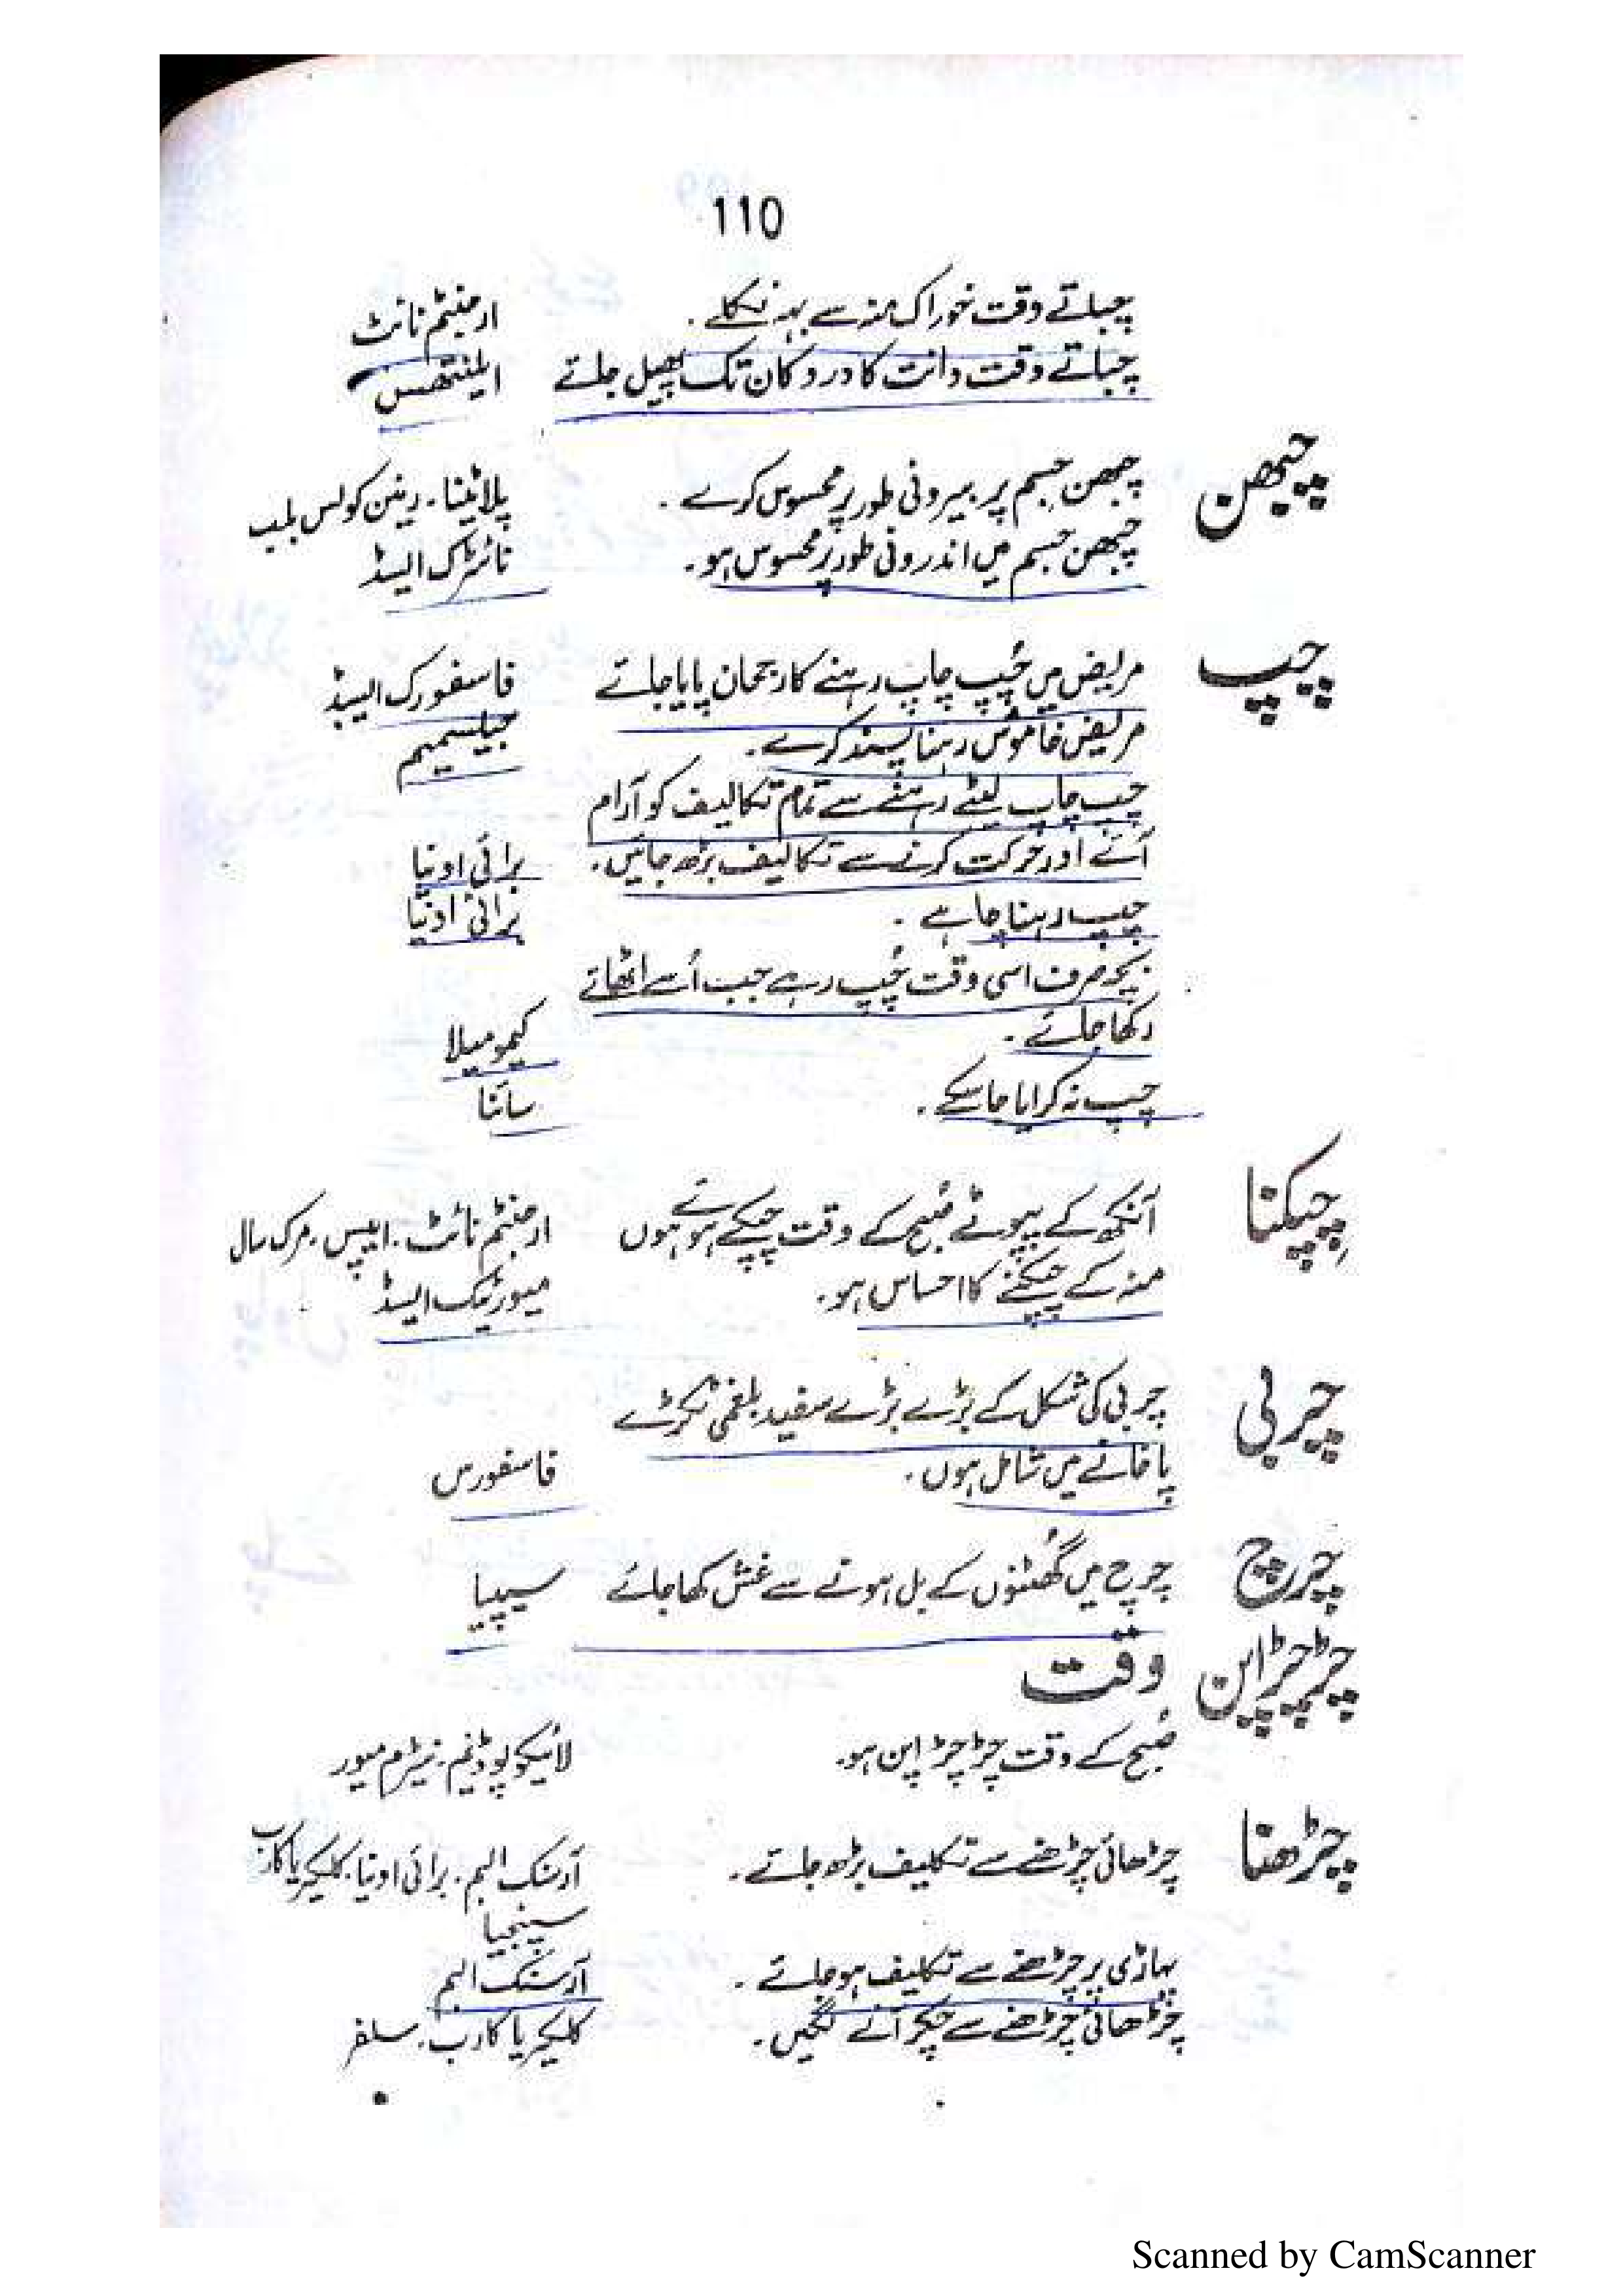 110
چباتے وقت خوراک منہ سے بہہ نکلے . ارجنٹم نائٹ
چباتے وقت دانت کا درد کان تک پھیل جائے ایلنتھس
چبھن چبھن جسم پر بیرونی طور پر محسوس کرے . پلاٹینا . رینن کولس بلب
چبھن جسم میں اندرونی طور پر محسوس ہو . نائٹرک ایسڈ
چپ مریض میں چُپ چاپ رہنے کا رجحان پایا جائے فاسفورک ایسڈ
مریض خاموش رہنا پسند کرے . جیلسیمیم
چپ چاپ لیٹے رہنے سے تمام تکالیف کو آرام
آئے اور حرکت کرنے سے تکالیف بڑھ جائیں . برائی اونیا
چپ رہنا چاہے . برائی اونیا
بچہ صرف اسی وقت چُپ رہے جب اُسے اٹھائے
رکھا جائے . کیمومیلا
چپ نہ کرایا جا سکے . سائنا
چپکنا آنکھ کے پپوٹے صُبح کے وقت چپکے ہوئے ہوں ارجنٹم نائٹ . ایپس . مرک سال
منہ کے چپکنے کا احساس ہو . میورٹیک ایسڈ
چربی چربی کی شکل کے بڑے بڑے سفید بلغمی ٹکڑے
پاخانے میں شامل ہوں . فاسفورس
چرچ چرچ میں گھٹنوں کے بل ہونے سے غش کھا جائے سیپیا
چڑچڑاپن وقت
صُبح کے وقت چڑچڑاپن ہو . لائیکوپوڈیم . نیٹرم میور
چڑھنا چڑھائی چڑھنے سے تکلیف بڑھ جائے . آرسنک البم . برائی اونیا . کلیکیریا کارب
سپنجیا
پہاڑی پر چڑھنے سے تکلیف ہو جائے . آرسنک البم
چڑھائی چڑھنے سے چکر آنے لگیں . کلیکیریا کارب . سلفر
Scanned by CamScanner